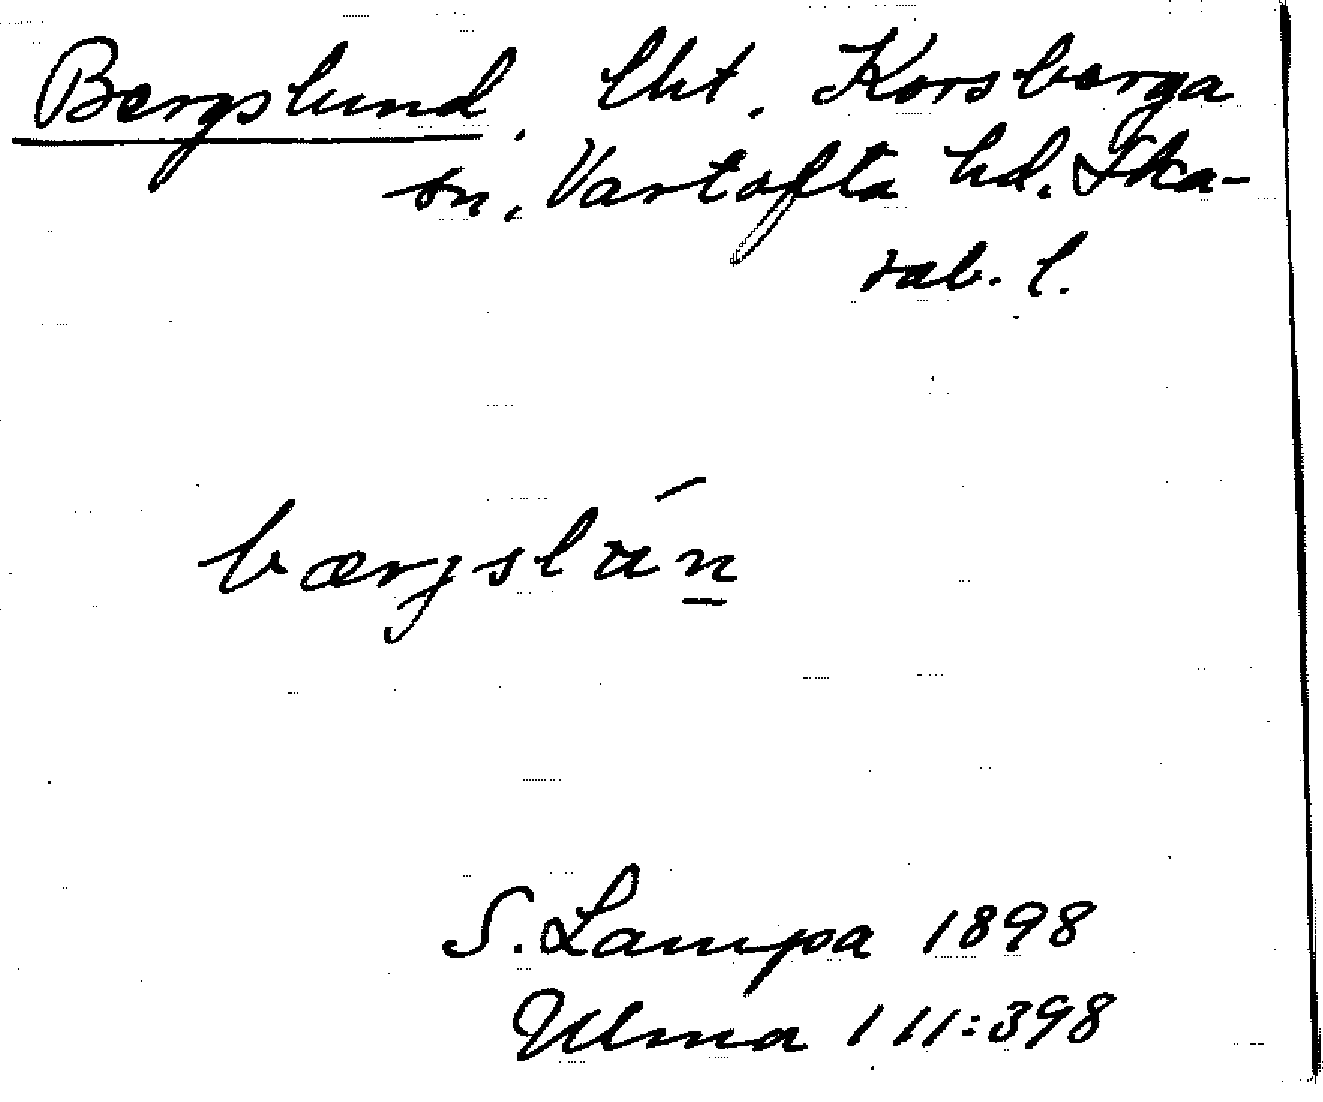 Bergslund. lht. Korsberga
sn. Vartofta hd. Ska-
rab. l.
bærjslán
S. Lampa 1898
Ulma 111:398